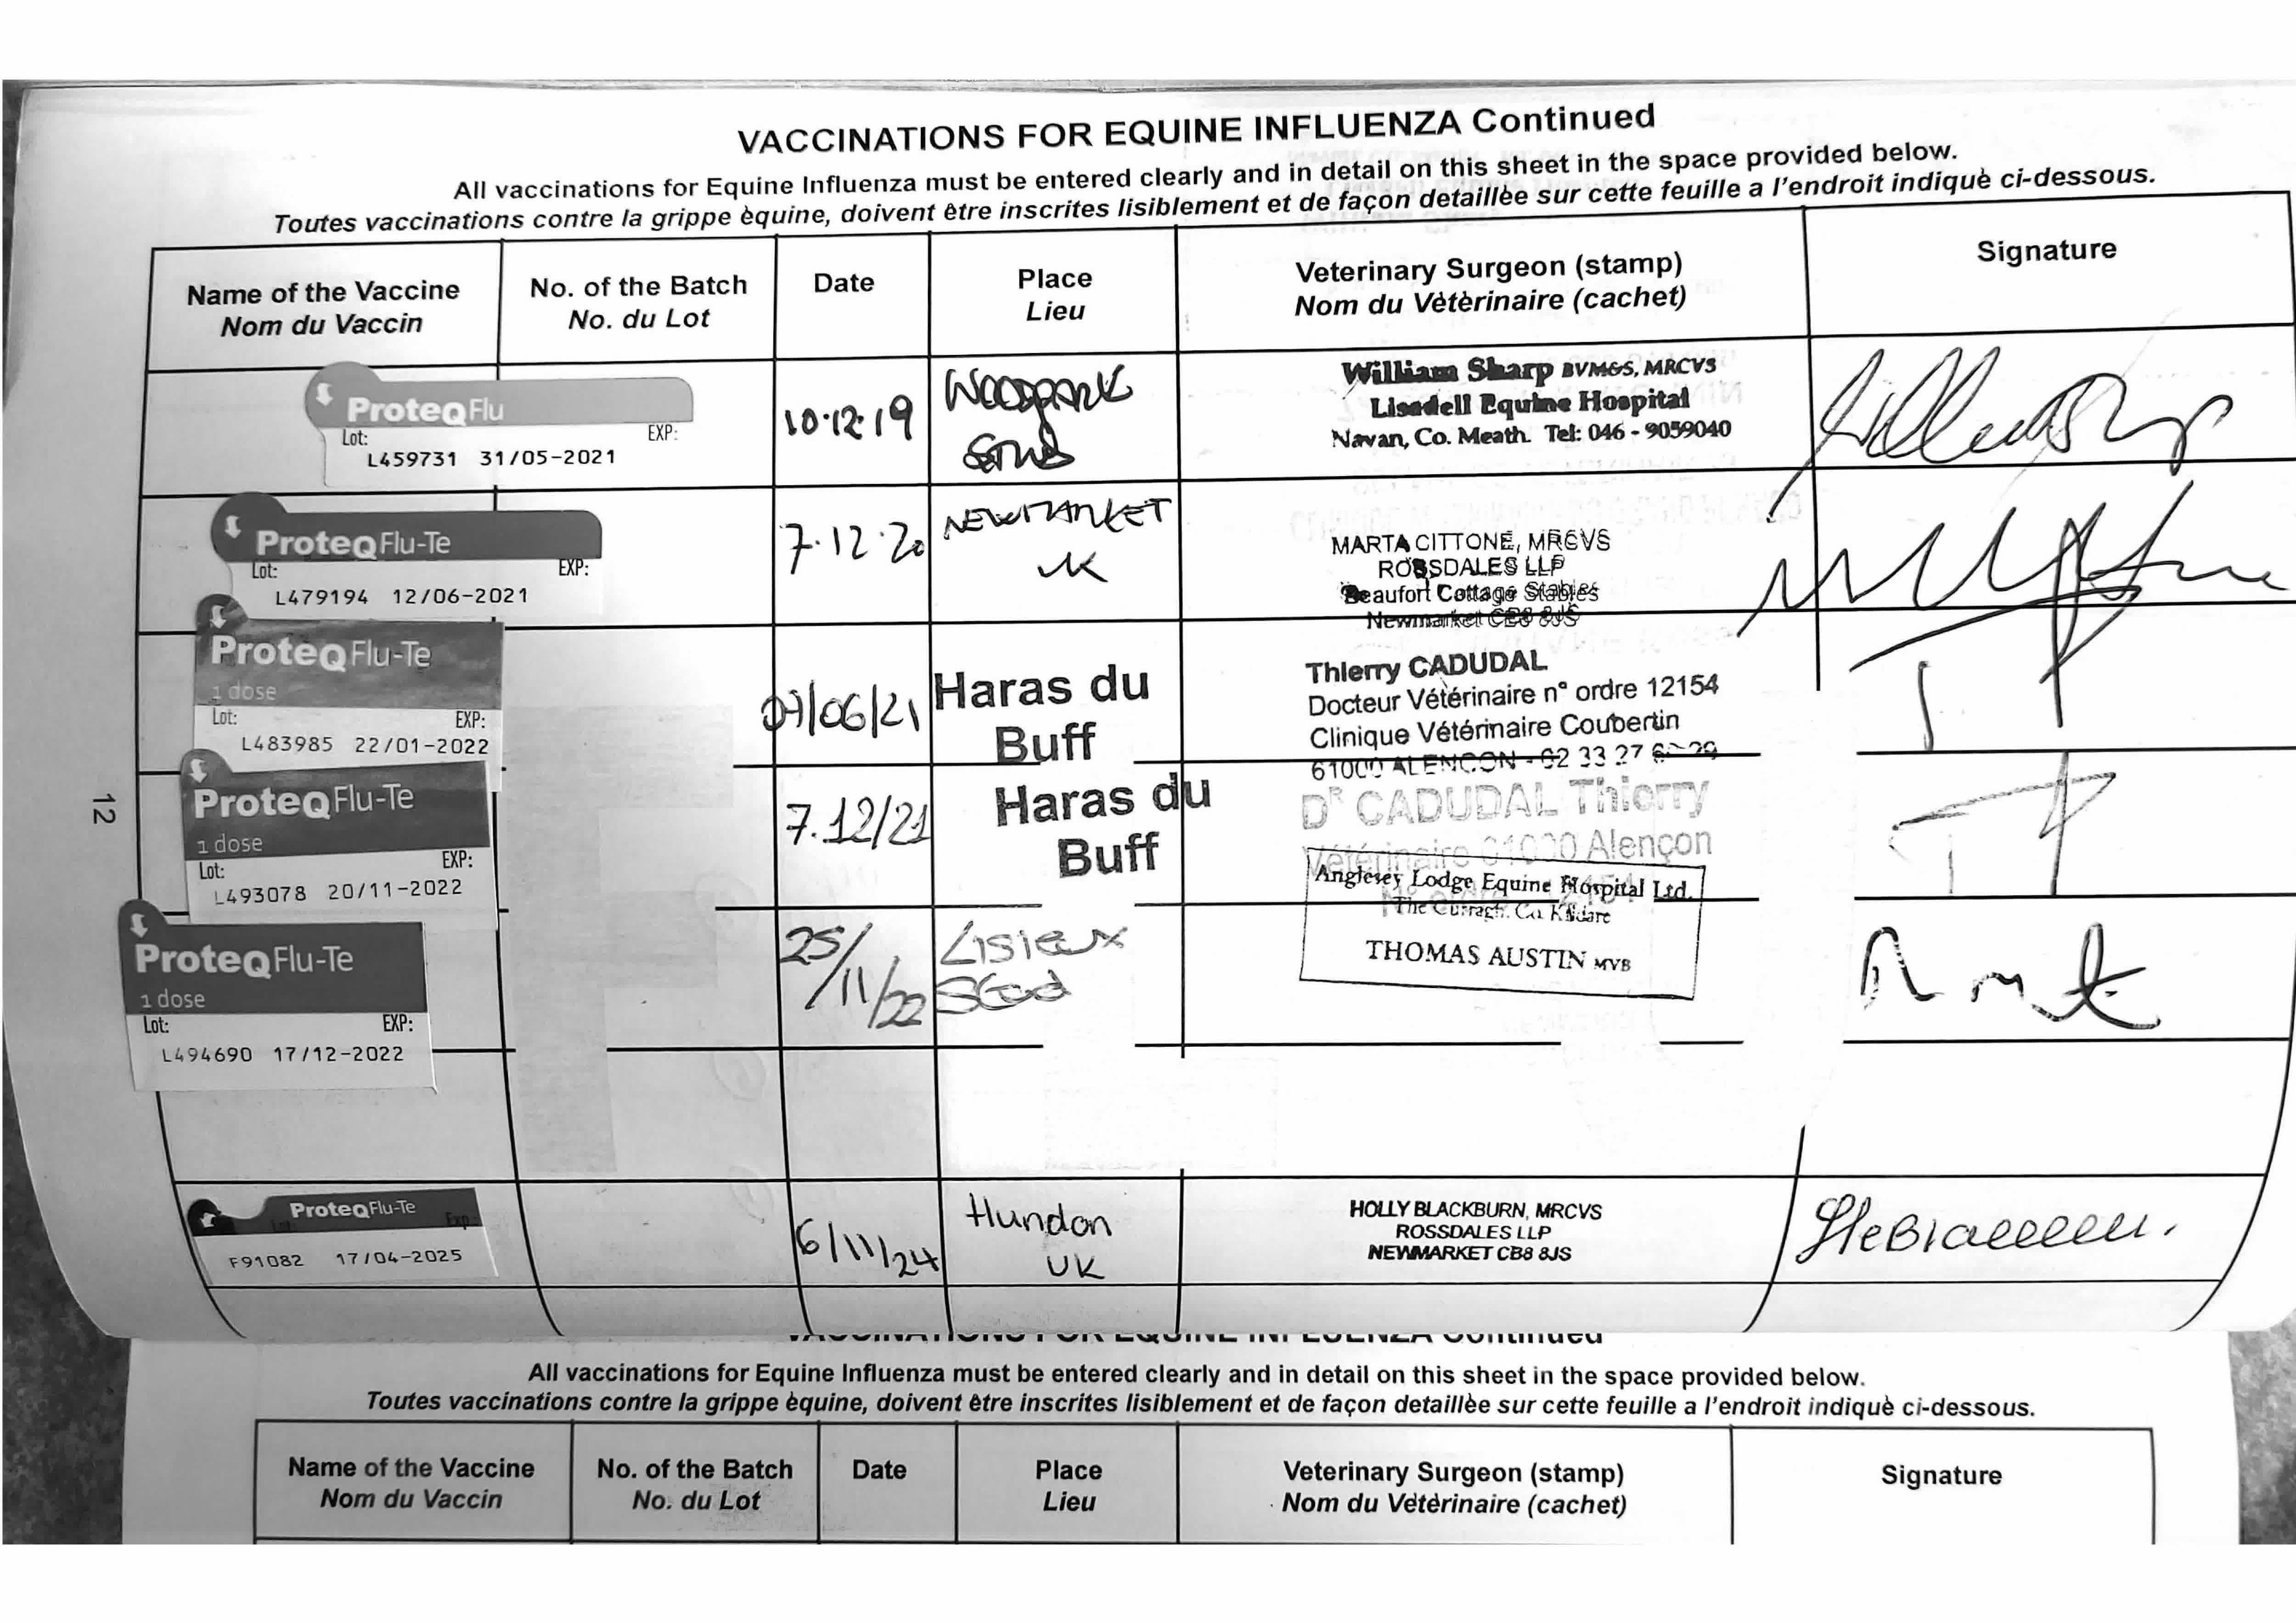 VACCINATIONS FOR EQUINE INFLUENZA Continued
All vaccinations for Equine Influenza must be entered clearly and in detail on this sheet in the space provided below.
Toutes vaccinations contre la grippe èquine, doivent être inscrites lisiblement et de façon detaillèe sur cette feuille a l'endroit indiquè ci-dessous.
Name of the Vaccine
Nom du Vaccin
No. of the Batch
No. du Lot
Date
Place
Lieu
Veterinary Surgeon (stamp)
Nom du Vètèrinaire (cachet)
Signature
ProteqFlu
Lot: EXP:
L459731 31/05-2021
10.12.19
WOODPARK
STUD
William Sharp BVM&S, MRCVS
Lisadell Equine Hospital
Navan, Co. Meath. Tel: 046 - 9059040
ProteqFlu-Te
Lot: EXP:
L479194 12/06-2021
7.12.20
NEWMARKET
UK
MARTA CITTONE, MRCVS
ROSSDALES LLP
Beaufort Cottage Stables
Newmarket CB8 8JS
ProteqFlu-Te
1 dose
Lot: EXP:
L483985 22/01-2022
/06/21
Haras du
Buff
Thierry CADUDAL
Docteur Vétérinaire n° ordre 12154
Clinique Vétérinaire Coubertin
61000 ALENCON - 02 33 27
ProteqFlu-Te
1 dose
Lot: EXP:
L493078 20/11-2022
7.12/21
Haras du
Buff
Dr CADUDAL Thierry
Vétérinaire 61000 Alençon
ProteqFlu-Te
1 dose
Lot: EXP:
L494690 17/12-2022
25/11/22
Lisieux
Stud
Anglesey Lodge Equine Hospital Ltd.
The Curragh. Co. Kildare
THOMAS AUSTIN MVB
ProteqFlu-Te
Lot: Exp:
F91082 17/04-2025
6/11/24
Hundon
UK
HOLLY BLACKBURN, MRCVS
ROSSDALES LLP
NEWMARKET CB8 8JS
12
VACCINATIONS FOR EQUINE INFLUENZA Continued
All vaccinations for Equine Influenza must be entered clearly and in detail on this sheet in the space provided below.
Toutes vaccinations contre la grippe èquine, doivent être inscrites lisiblement et de façon detaillèe sur cette feuille a l'endroit indiquè ci-dessous.
Name of the Vaccine
Nom du Vaccin
No. of the Batch
No. du Lot
Date
Place
Lieu
Veterinary Surgeon (stamp)
Nom du Vètèrinaire (cachet)
Signature